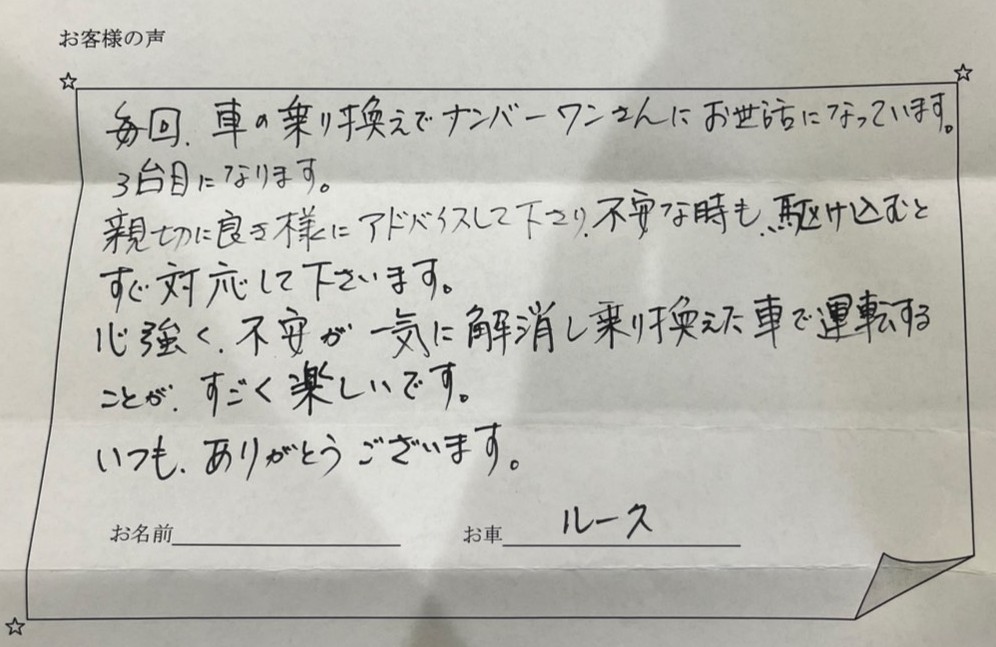 お客様の声
毎回、車の乗り換えでナンバーワンさんにお世話になっています。
3台目になります。
親切に良き様にアドバイスして下さり、不安な時も、駆け込むと
すぐ対応して下さいます。
心強く、不安が一気に解消し乗り換えた車で運転する
ことが、すごく楽しいです。
いつも、ありがとうございます。
お名前 お車 ルークス